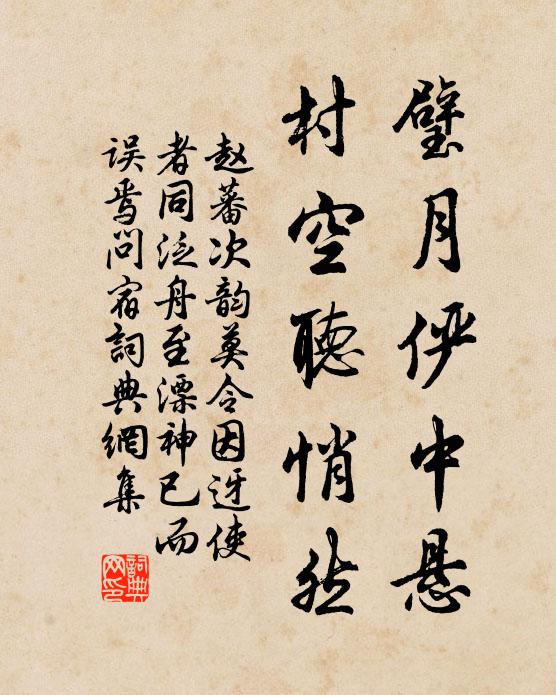 璧月俨中悬
村空聽悄然
赵蕃次韵莫令因迓使
者同泛舟至漂神已而
误焉问宿詞典網集
詞典
网印